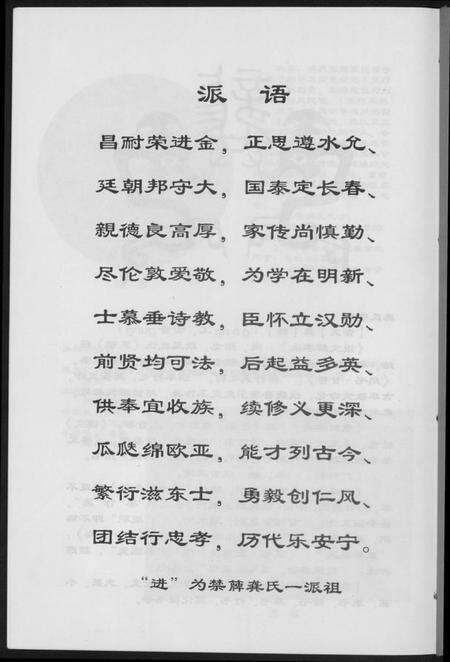 派 语
昌耐荣进金，正思遵水允、
廷朝邦守大，国泰定长春、
親德良高厚，家传尚慎勤、
尽伦敦爱敬，为学在明新、
士慕垂诗教，臣怀立汉勋、
前贤均可法，后起益多英、
供奉宜收族，续修义更深、
瓜瓞绵欧亚，能才列古今、
繁衍滋东士，勇毅创仁风、
团结行忠孝，历代乐安宁。
“进”为禁脾龚氏一派祖